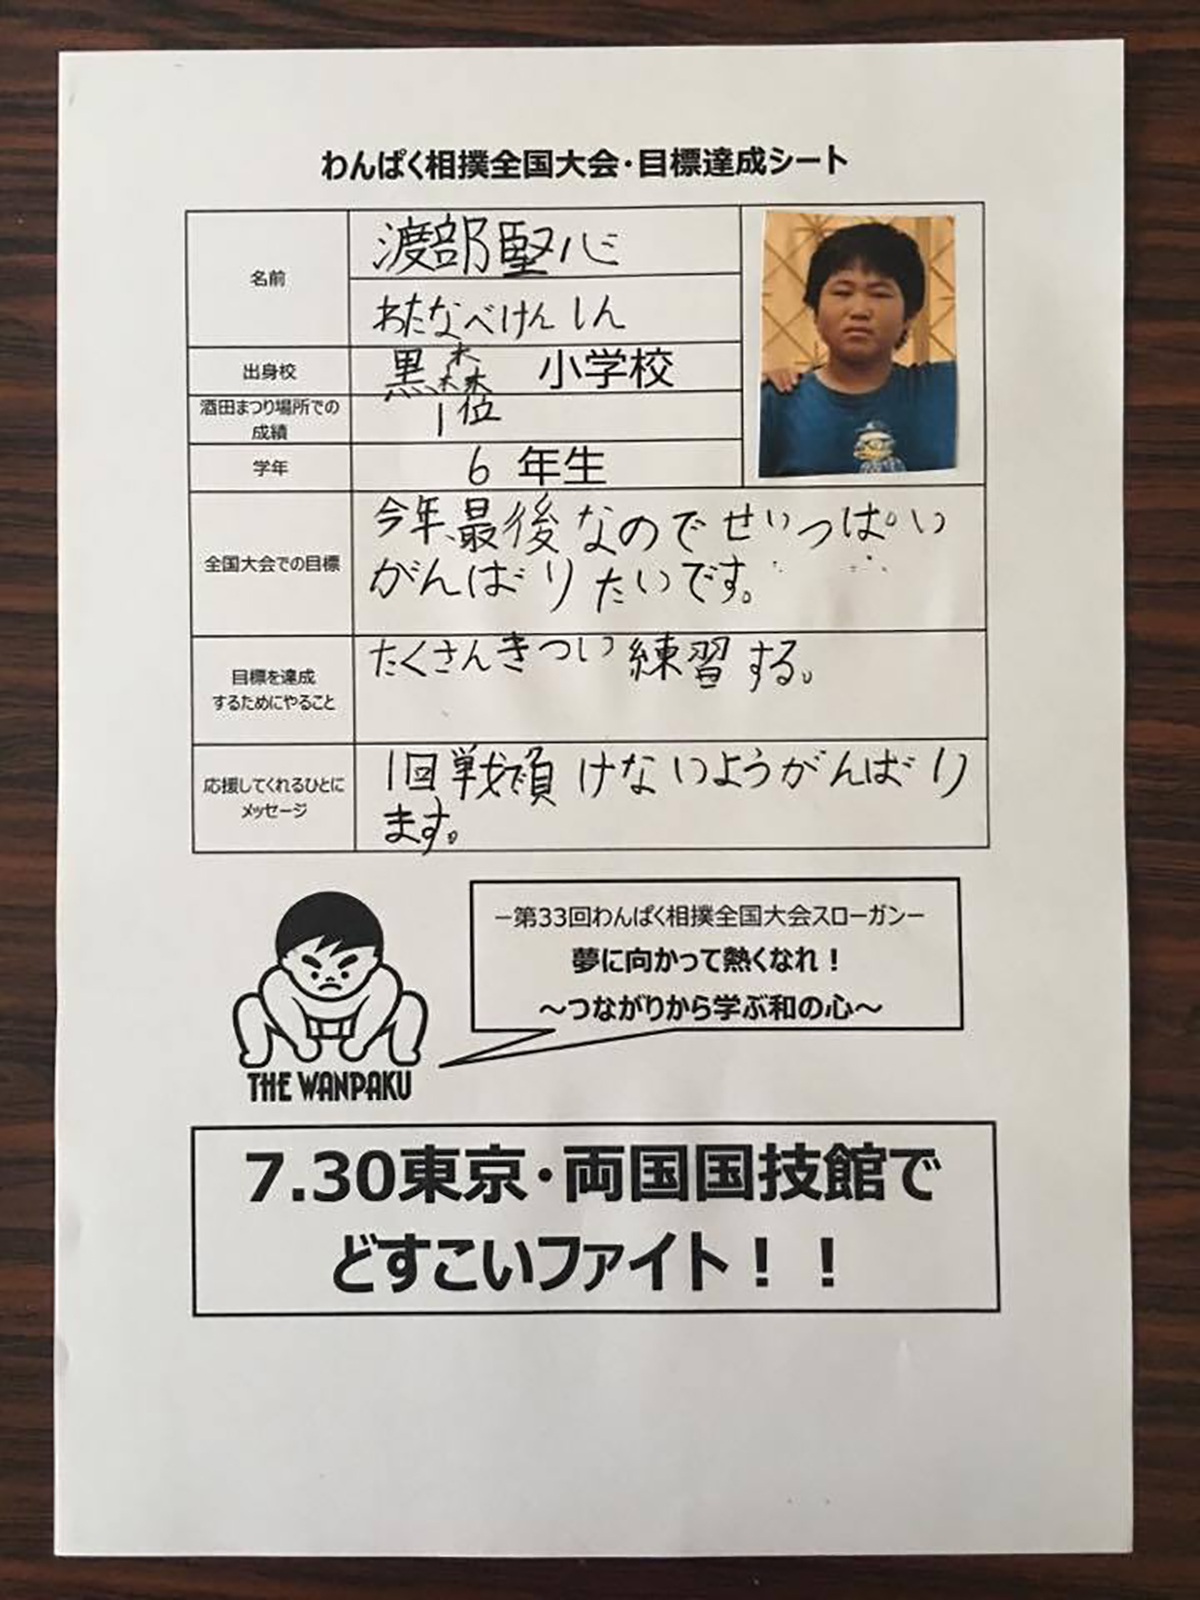 わんぱく相撲全国大会・目標達成シート
名前
渡部堅心
わたなべけんしん
出身校
黒森 小学校
酒田まつり場所での
成績
1位
学年
6 年生
全国大会での目標
今年、最後なのでせいっぱい
がんばりたいです。
目標を達成
するためにやること
たくさんきつい練習する。
応援してくれるひとに
メッセージ
1回戦で負けないようがんばり
ます。
－第33回わんぱく相撲全国大会スローガン－
夢に向かって熱くなれ！
～つながりから学ぶ和の心～
THE WANPAKU
7.30東京・両国国技館で
どすこいファイト！！